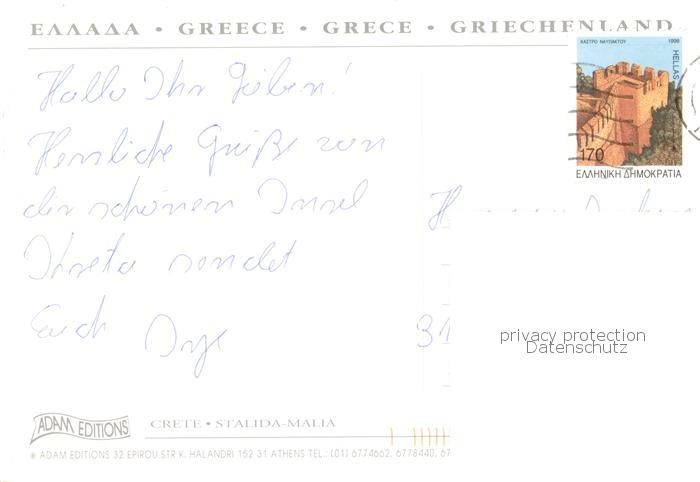 ΕΛΛΑΔΑ • GREECE • GRECE • GRIECHENLAND
ΚΑΣΤΡΟ ΝΑΥΠΑΚΤΟΥ 1998
HELLAS
170
ΕΛΛΗΝΙΚΗ ΔΗΜΟΚΡΑΤΙΑ
Hallo Ihr Lieben!
Herzliche Grüße von
der schönen Insel
Kreta sendet
Euch
31
privacy protection
Datenschutz
ADAM EDITIONS
CRETE • STALIDA-MALIA
® ADAM EDITIONS 32 EPIROU STR K. HALANDRI 152 31 ATHENS TEL.. (01) 6774662, 6778440, 67